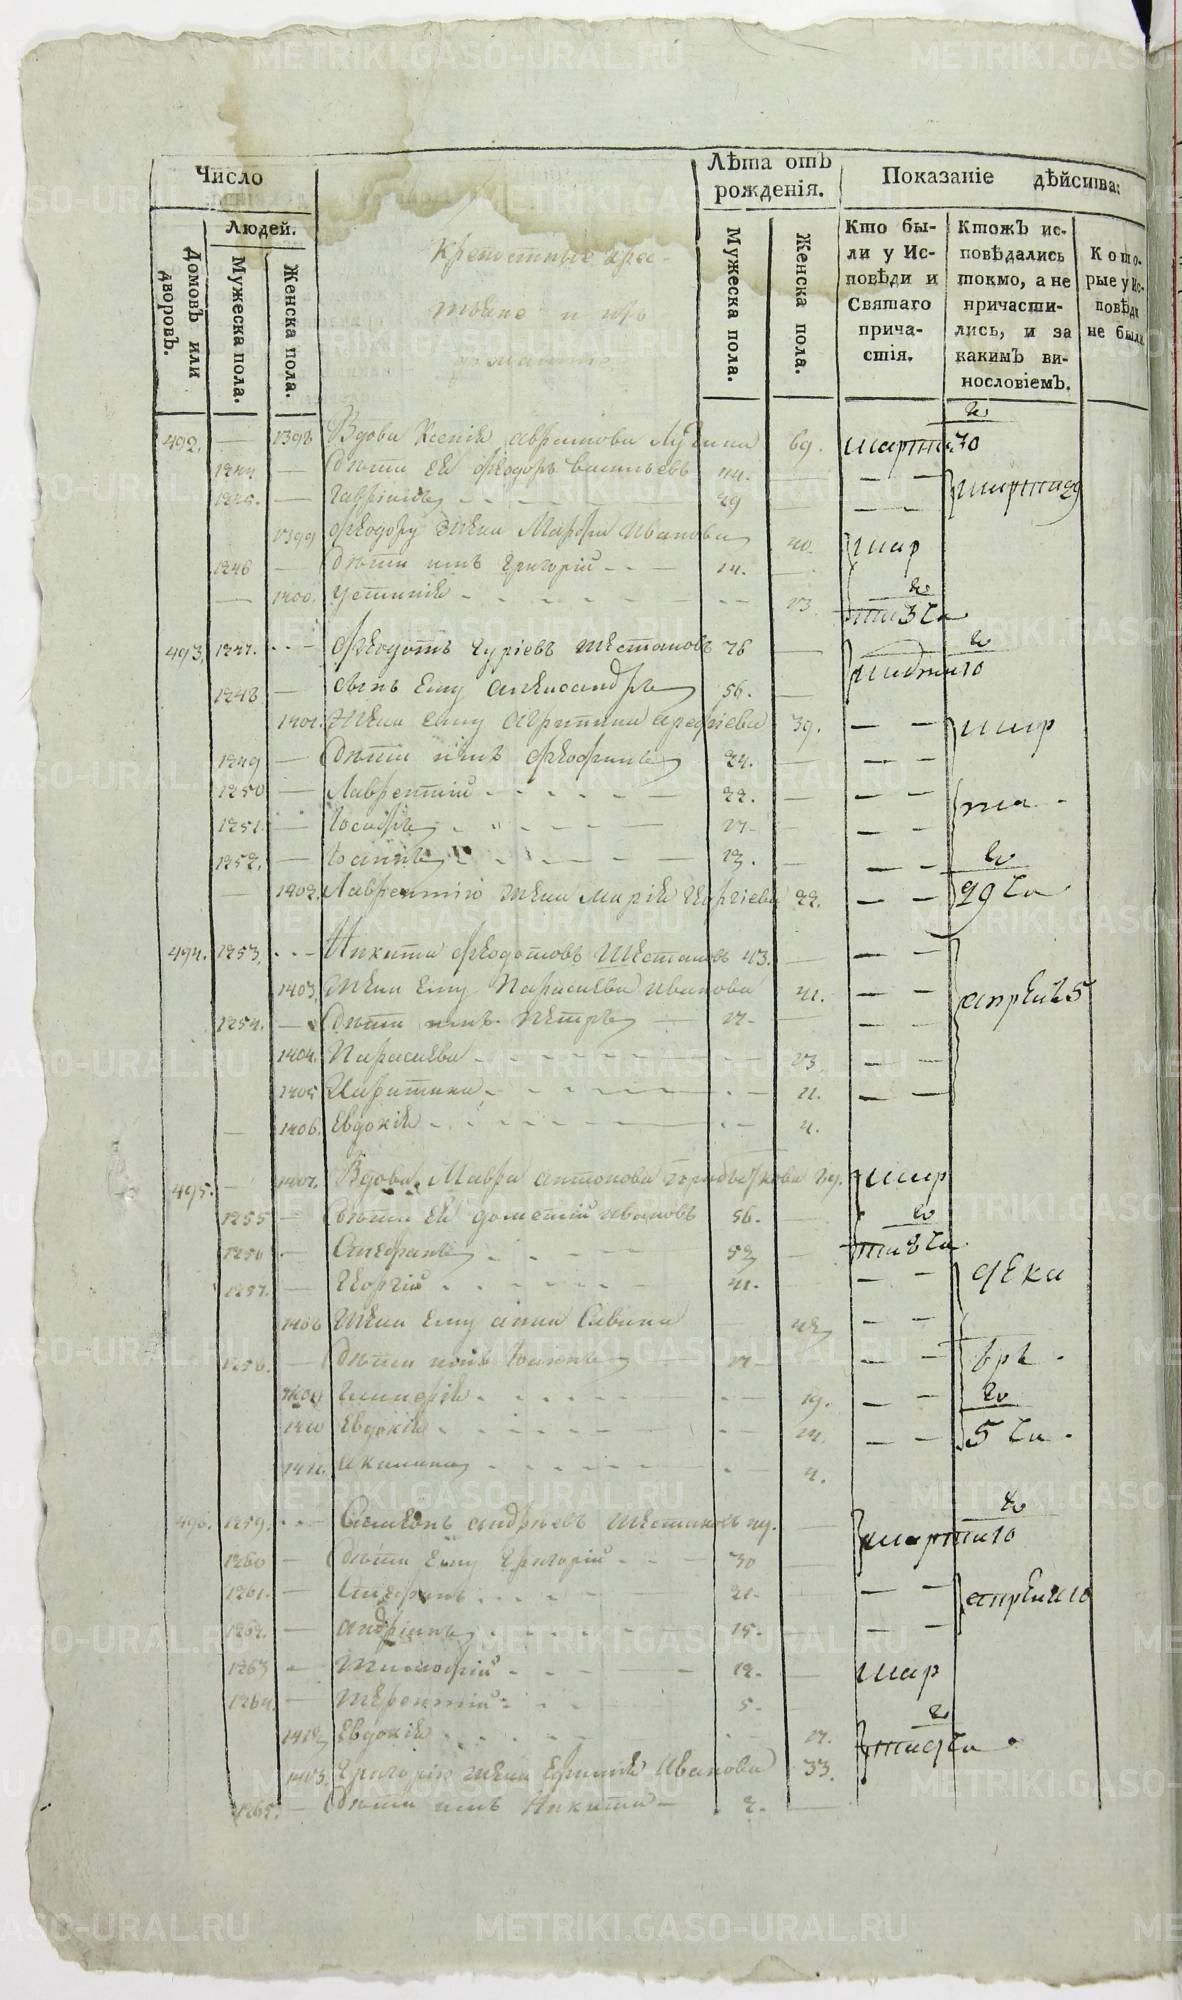 Число
Лѣта отъ рожденія.
Показаніе дѣйства:
Домовъ или дворовъ.
Людей.
Мужеска пола.
Женска пола.
Крепостные крес-
тьяне и ихъ
Мужеска пола.
Женска пола.
Кто бы-
ли у Ис-
повѣди и
Святаго
прича-
стія.
Ктожъ ис-
повѣдались
токмо, а не
причасти-
лись, и за
какимъ ви-
нословіемъ.
Кото-
рые у Ис-
повѣди
не были
492. — 1398 Вдова Ксенія Авраамова 69. марта 10
1244 — Дѣти ея Ѳеодоръ Васильевъ 44. — —
1245. — Гавріилъ 29 — — марта 29
1399 Ѳеодору жена Марѳа Иванова 40. мар
1246 — Дѣти ихъ Григорій 14. —
— 1400. Устинія 13. та 3 го
493. 1247. Ѳеодотъ Гуріевъ Шестаковъ 76 —
1248 — сынъ ему Александръ 56. —
1401. Жена ему Агрипина 39. — — мар
1249 — Дѣти ихъ 24. — — —
1250 — Лаврентій 22. — — — та
1251. — Іосифъ 17 — — —
1252. — Іоаннъ 13. — — —
— 1402. Лаврентію жена Марія Георгіева 22. — — 29 го
494. 1253. Никита Ѳеодотовъ Шестаковъ 43. — — —
1403. Жена ему Параскева Иванова 41. — — апреля 5
1254. — Дѣти ихъ Петръ 17 — — —
1404. Параскева 13. — —
1405 Харитина 11. — —
— 1406. Евдокія 4.
495. — 1407. Вдова Мавра Антонова мар
1255 — Дѣти ея Дометій Ивановъ 56. —
1256 — 52 — та 8 го
1257. — Георгій 41. — — дека
1408 Жена ему Анна Савина 42 — —
1258. — Дѣти ихъ Іоаннъ 17 — — — бря
1409 19. — —
1410 Евдокія 14. — — 5 го
1411. Акилина 4.
496. 1259. Симеонъ Андреевъ Шестаковъ — марта 10
1260 — Дѣти ему Григорій 30 —
1261. — 21. — — апреля 10
1262. — Андріанъ 15. — —
1263 — Тимоѳей 12. — мар
1264. — Терентій 5.
1412 Евдокія 17. та 9 го
1413. Григорію жена Евфимія Иванова 33.
1265. — Дѣти ихъ Никита — 2. —
METRIKI.GASO-URAL.RU